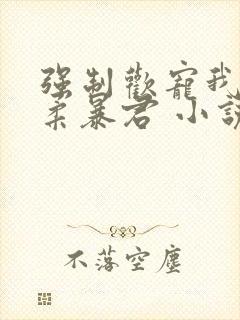 强制歡寵我
柔暴君 小說
不落空塵